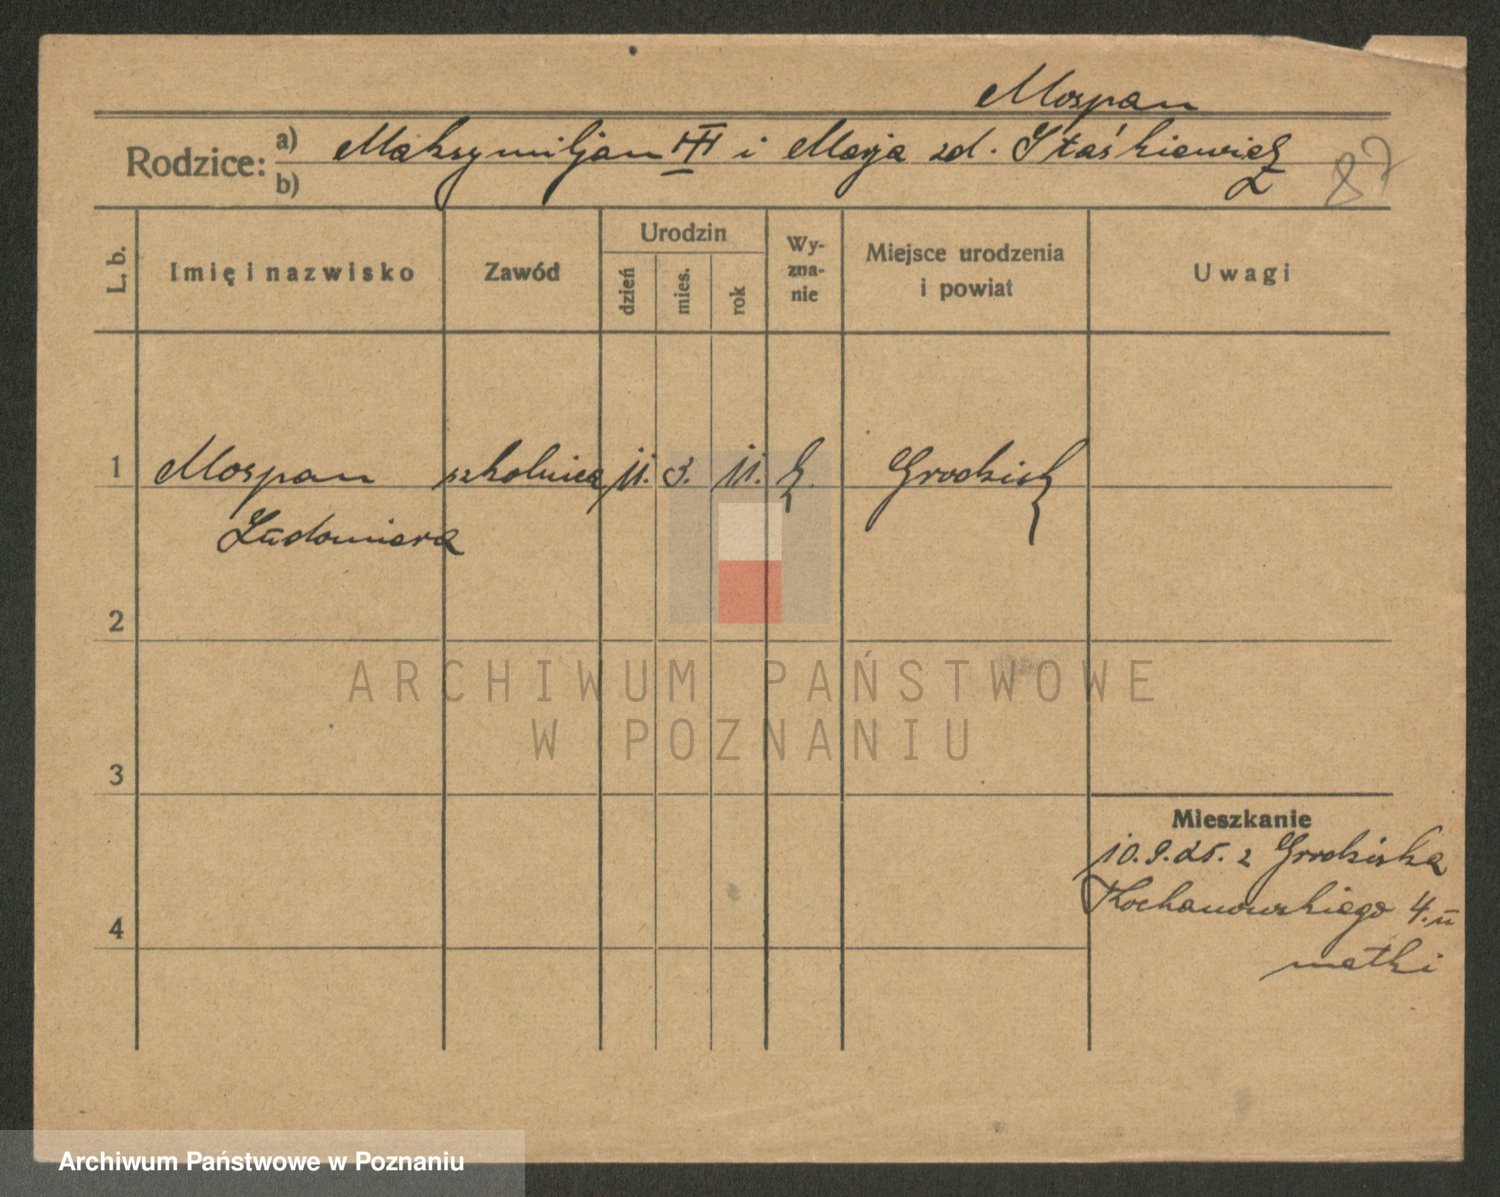 Mospan
Rodzice: a) Maksymiljan i Marja zd. Staśkiewicz
b)
87
L. b. Imię i nazwisko Zawód Urodzin dzień mies. rok Wyznanie Miejsce urodzenia i powiat Uwagi
1 Mospan szkolnica 11. 3. 11. k. Grodzisk
Ludomiera
2
ARCHIWUM PAŃSTWOWE
W POZNANIU
3
Mieszkanie
10.9.25. z Grodziska
Kochanowskiego 4.
4
matki
Archiwum Państwowe w Poznaniu